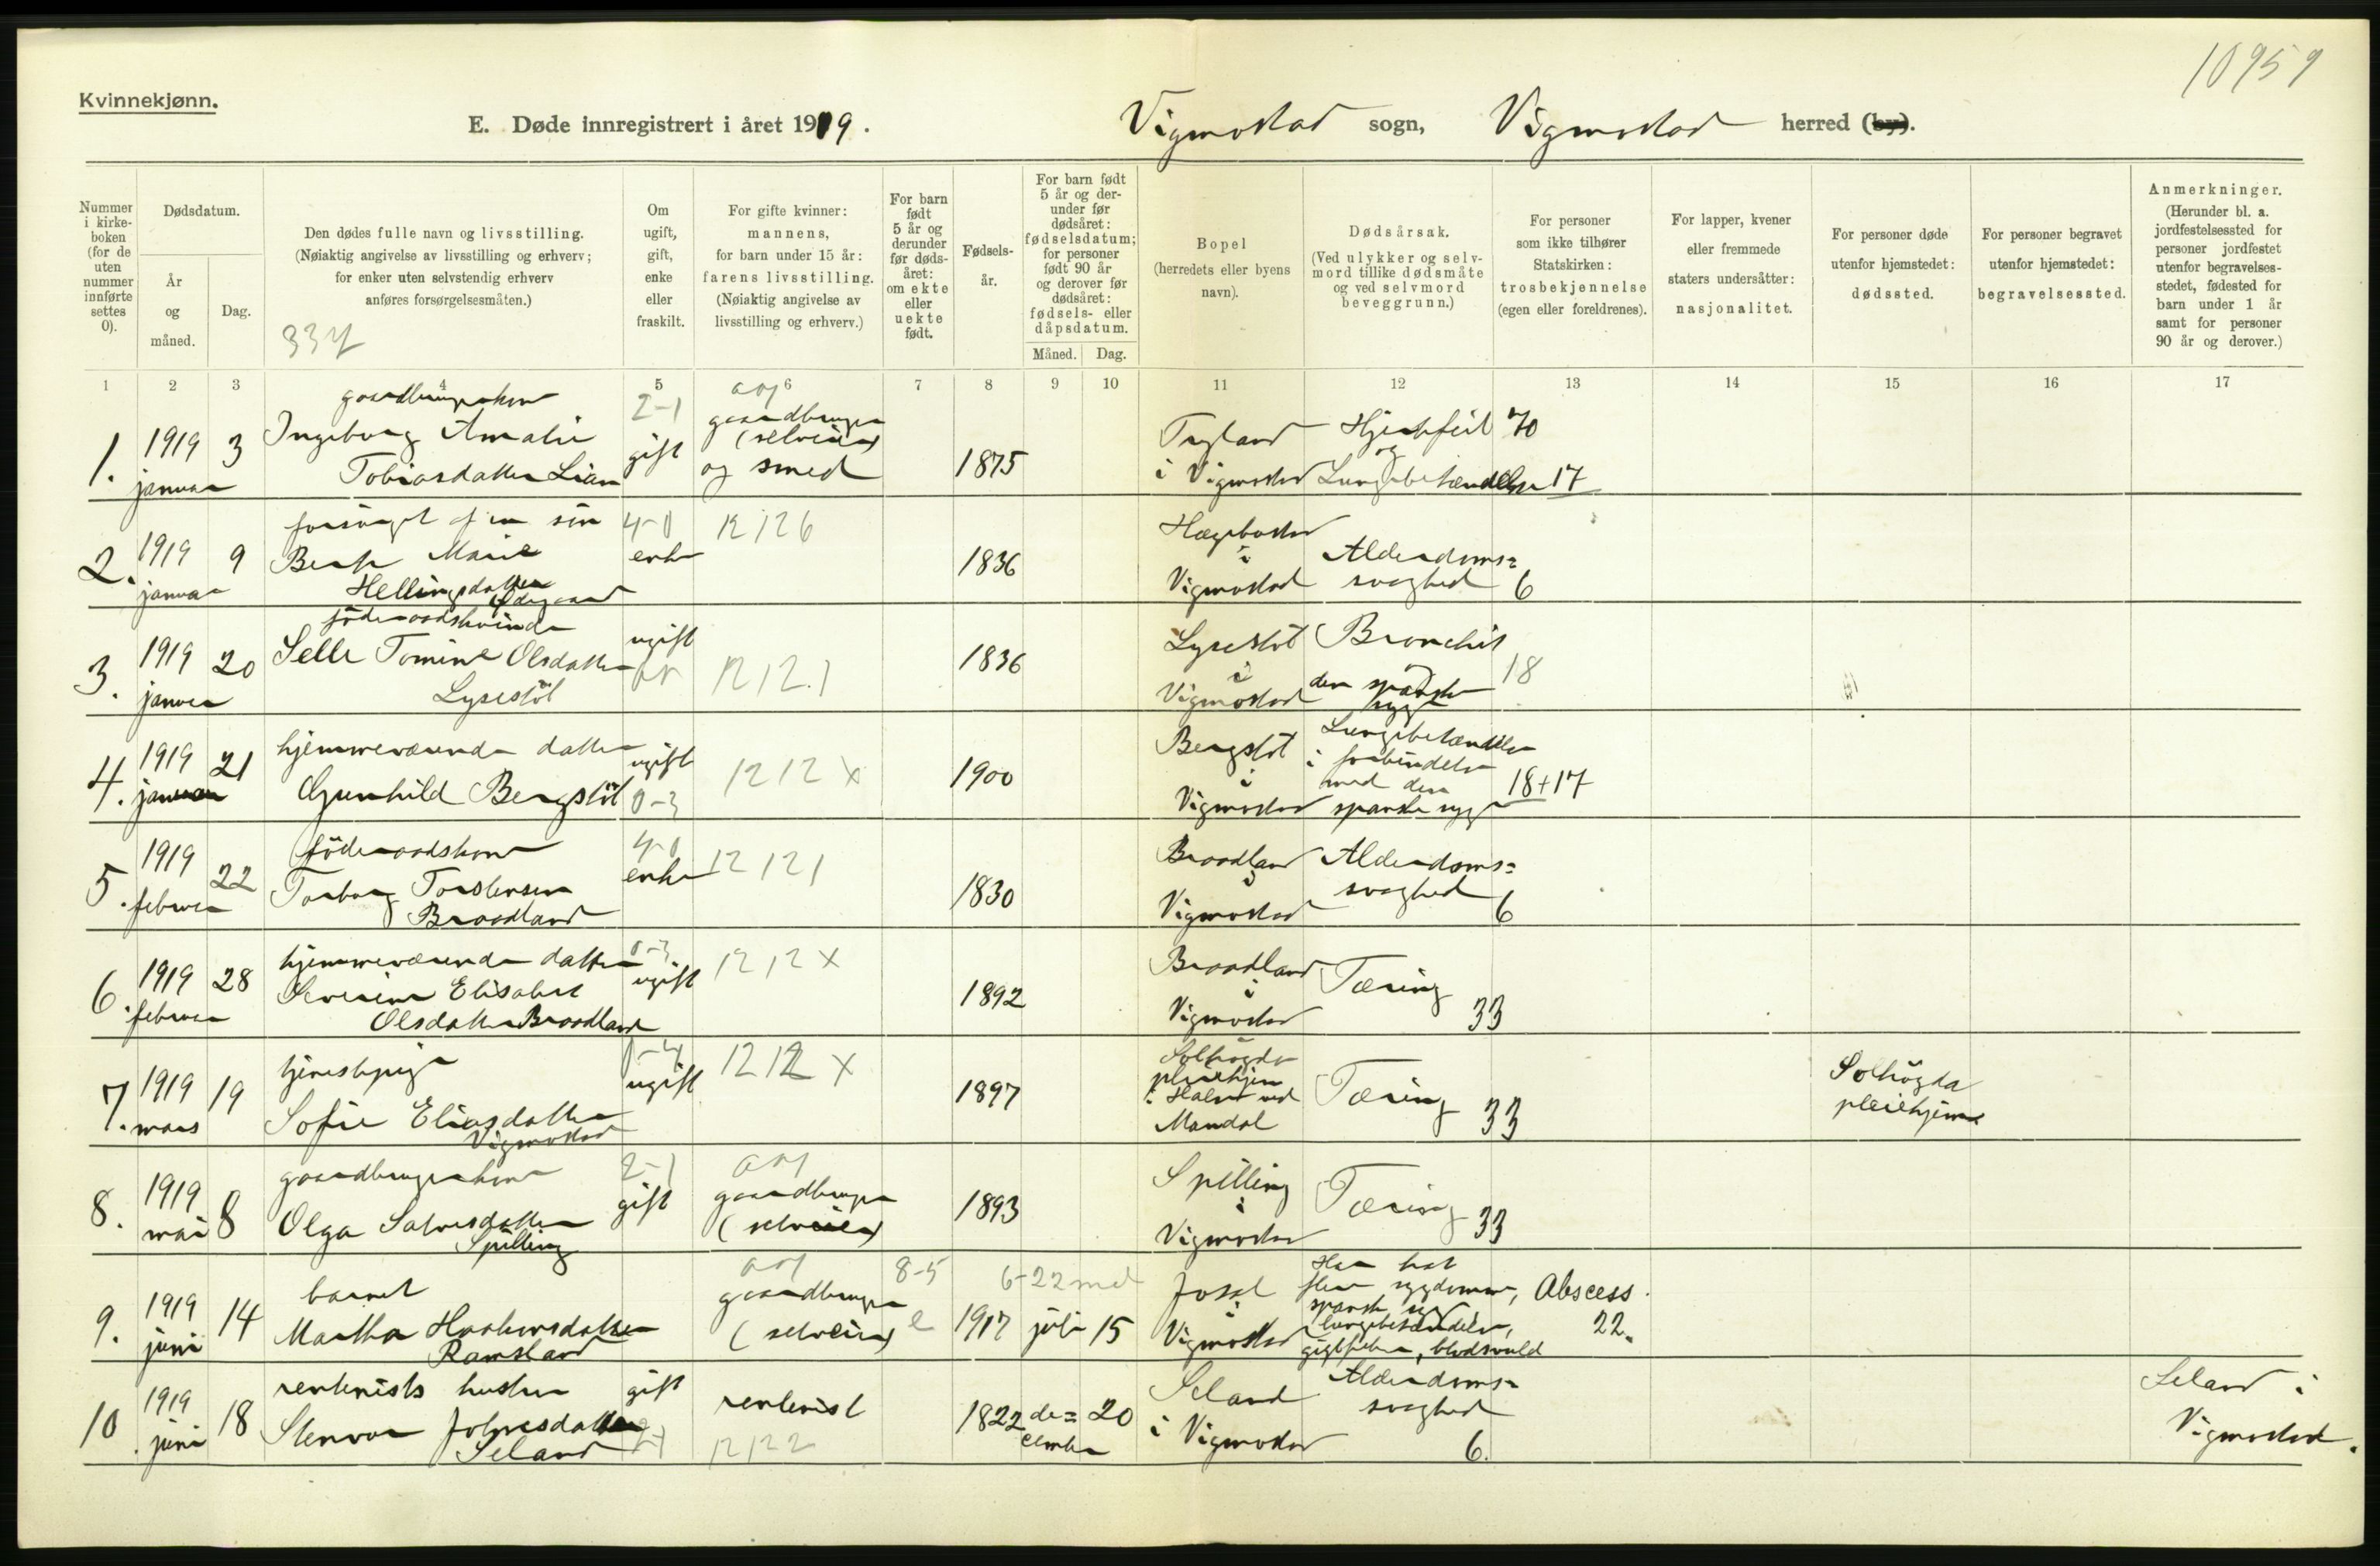 10959
Kvinnekjønn.
E. Døde innregistrert i året 1919. Vigmostad sogn, Vigmostad herred (by).
Nummer i kirke-boken (for de uten nummer innførte settes 0).
Dødsdatum.
År og måned.
Dag.
Den dødes fulle navn og livsstilling.
(Nøiaktig angivelse av livsstilling og erhverv;
for enker uten selvstendig erhverv
anføres forsørgelsesmåten.)
337
Om ugift, gift, enke eller fraskilt.
For gifte kvinner:
mannens,
for barn under 15 år:
farens livsstilling.
(Nøiaktig angivelse av
livsstilling og erhverv.)
For barn født 5 år og derunder før døds-året: om ekte eller uekte født.
Fødsels-år.
For barn født 5 år og der-under før dødsåret: fødselsdatum; for personer født 90 år og derover før dødsåret: fødsels- eller dåpsdatum.
Måned. Dag.
Bopel
(herredets eller byens
navn).
Dødsårsak.
(Ved ulykker og selv-
mord tillike dødsmåte
og ved selvmord
beveggrunn.)
For personer
som ikke tilhører
Statskirken:
trosbekjennelse
(egen eller foreldrenes).
For lapper, kvener
eller fremmede
staters undersåtter:
nasjonalitet.
For personer døde
utenfor hjemstedet:
dødssted.
For personer begravet
utenfor hjemstedet:
begravelsessted.
Anmerkninger.
(Herunder bl. a.
jordfestelsessted for
personer jordfestet
utenfor begravelses-
stedet, fødested for
barn under 1 år
samt for personer
90 år og derover.)
1 2 3 4 5 6 7 8 9 10 11 12 13 14 15 16 17
1. 1919 januar 3
gaardbrugerkone
Ingeborg Amalie
Tobiasdatter Lian
2-1
gift
gaardbruger
(selveier)
og smed
1875
i Vigmostad
Hjertefeil 70
og
Lungebetændelse 17
2. 1919 januar 9
forsörget af en sön
Berte Marie
Hellingsdatter
Ødegaard
4-0
enke
12126
1836
Hægebostad
i
Vigmostad
Alderdoms=
svaghed 6
3. 1919 januar 20
föderaadskvinde
Selle Tomine Olsdatter
Lysestöl
ugift
12 12.1
1836
Lysestöl
i
Vigmostad
Bronchit
den spanske
syge
18
4. 1919 januar 21
hjemmeværende datter
Gunhild Bergstöl
ugift
0-3
12 12 x
1900
Bergstöl
i
Vigmostad
Lungebetændelse
i forbindelse
med den
spanske syge
18+17
5. 1919 februar 22
föderaadskone
Torborg Torstensen
Braadland
4-0
enke
12 121
1830
Braadland
i
Vigmostad
Alderdoms=
svaghed
6
6. 1919 februar 28
hjemmeværende datter
Severine Elisabet
Olsdatter Braadland
0-3
ugift
12 12 x
1892
Braadland
i
Vigmostad
Tæring
33
7. 1919 mars 19
tjenestepige
Sofie Eliasdatter
Vigmostad
0-4
ugift
12 12 x
1897
Solhögda
pleiehjem
i Halse ved
Mandal
Tæring
33
Solhögda
pleiehjem
8. 1919 mai 8
gaardbrugerkone
Olga Salvesdatter
Spilling
2-1
gift
gaardbruger
(selveier)
1893
Spilling
i
Vigmostad
Tæring
33
9. 1919 juni 14
barnet
Martha Haakonsdatter
Ramsland
gaardbruger
(selveier)
8-5
e
6-22 md
1917 juli 15
i
Vigmostad
Har hat
flere sygdomme,
spansk syge
lungebetændelse,
gigtfeber, blodsvuld
Abscess.
22.
10. 1919 juni 18
rentenists hustru
Stenvor Johnesdatter
Seland
gift
rentenist
12122
1822 de=cember 20
Seland
i Vigmostad
Alderdoms=
svaghed
6.
Seland i
Vigmostad.